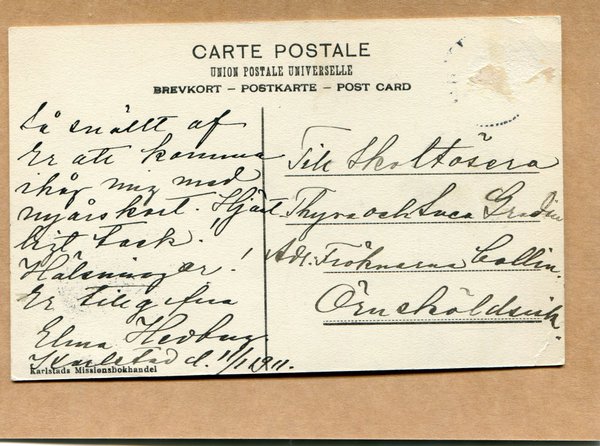 CARTE POSTALE
UNION POSTALE UNIVERSELLE
BREVKORT – POSTKARTE – POST CARD
Så snällt af
Er att komma
ihåg mig med
nyårskort. Hjärt
ligt tack.
Hälsningar!
Er tillgifna
Elma Hedberg
Karlstad d. 11/1 1911.
Karlstads Missionsbokhandel
Till Skoltösera
Thyra och Svea
Adr: Fröknarna Collin.
Örnsköldsvik.